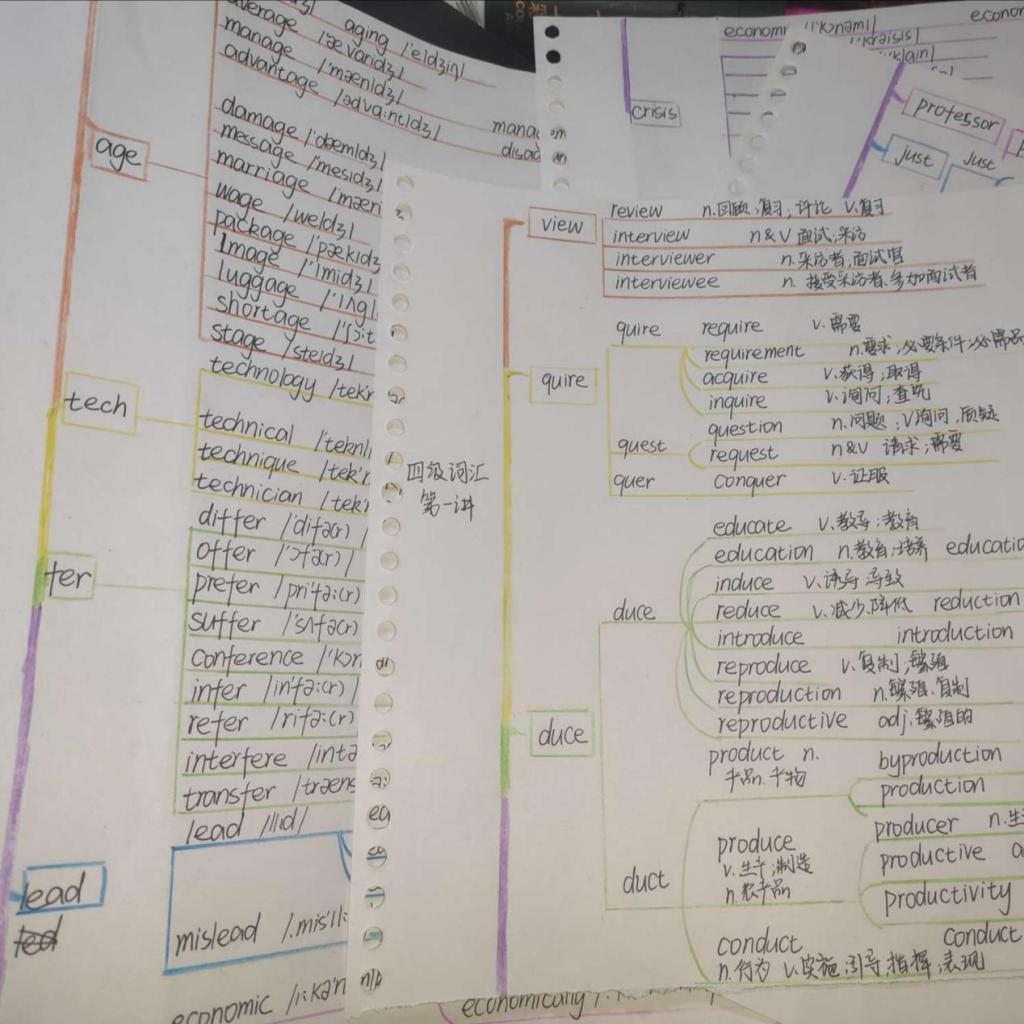 aging /ˈeldʒiŋ/
average /ˈævəridʒ/
manage /ˈmænldʒ/
advantage /ədvɑːntldʒ/
damage /ˈdæmldʒ/
message /ˈmesidʒ/
marriage /ˈmæri
wage /weldʒ/
package /ˈpækidʒ
Image /ˈimidʒ/
luggage /ˈlʌgl
shortage /ˈʃɔːt
stage /steldʒ/
age
tech
technology /tekn
technical /ˈteknl
technique /tekˈn
technician /tek
fer
differ /ˈdifə(r)/
offer /ˈɔfə(r)/
prefer /priˈfəː(r)
suffer /ˈsʌfə(r)
conference /ˈkɔn
infer /infəː(r)/
refer /rifəː(r)
interfere /intə
transfer /træns
lead /liːd/
lead
mislead /ˌmisˈliː
economic /iːkəˈn
economically
crisis
professor
just
just
四级词汇
第一讲
view
review n.回顾;复习;评论 v.复习
interview n&v 面试;采访
interviewer n.采访者;面试官
interviewee n.接受采访者.参加面试者
quire
quire require v.需要
requirement n.要求;必要条件;必需品
acquire v.获得;取得
inquire v.询问;查究
question n.问题;v询问.质疑
quest request n&v 请求;需要
quer conquer v.证服
duce
educate v.教导;教育
education n.教育;培养 educatio
induce v.诱导.导致
duce reduce v.减少.降低 reduction
introduce introduction
reproduce v.复制;繁殖
reproduction n.繁殖.复制
reproductive adj.繁殖的
product n. byproduction
产品.产物 production
produce producer n.生
v.生产;制造 productive a
duct n.农产品 productivity
conduct conduct
n.行为 v.实施;引导;指挥;表现